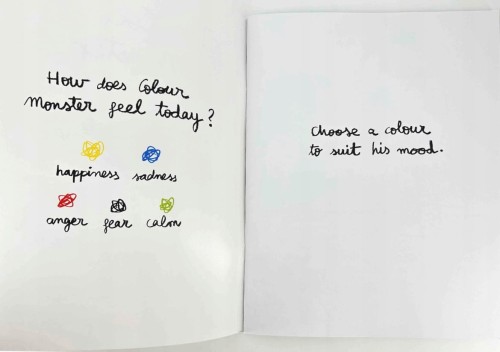 How does Colour
Monster feel today?
happiness sadness
anger fear calm
Choose a colour
to suit his mood.